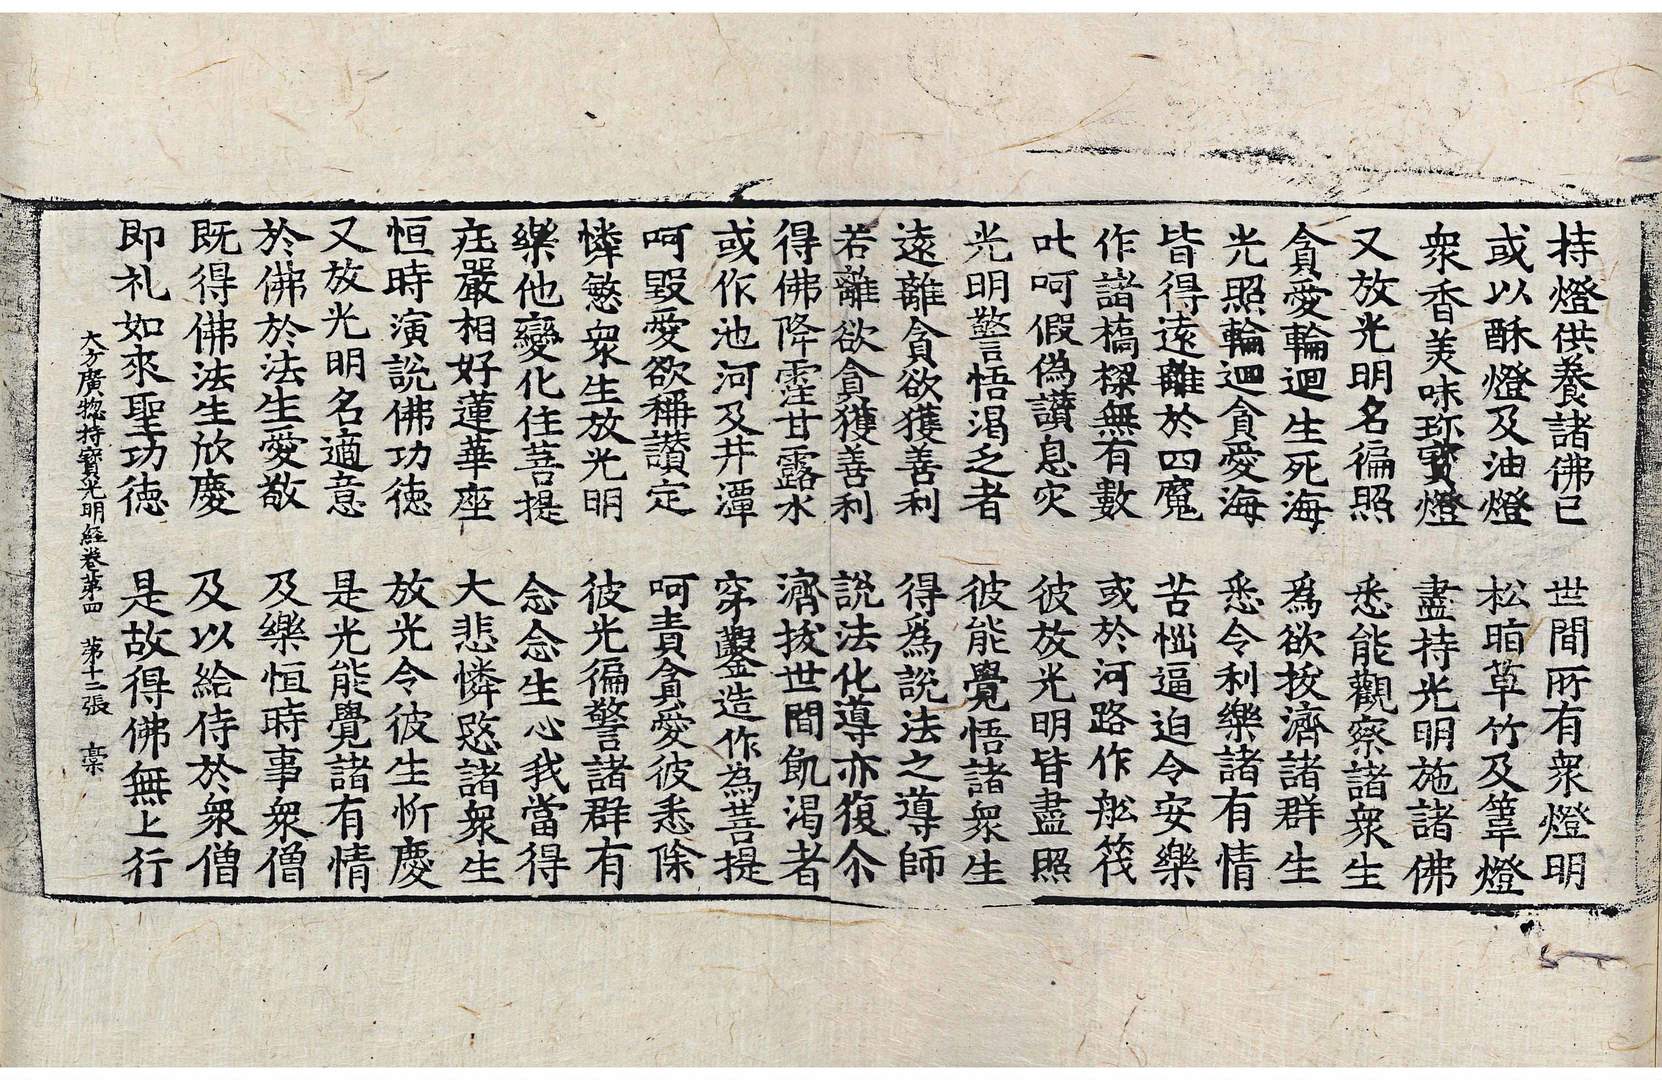 持燈供養諸佛已　世間所有衆燈明
或以酥燈及油燈　松草竹及葦燈
衆香美味珎寶燈　盡持光明施諸佛
又放光明名徧照　悉能觀察諸衆生
貪愛輪迴生死海　爲欲拔濟諸群生
光照輪迴貪愛海　悉令利樂諸有情
皆得遠離於四魔　苦惱逼迫令安樂
作諸橋樑無有數　或於河路作舩筏
叱呵假偽讃息灾　彼放光明皆盡照
光明警悟渴乏者　彼能覺悟諸衆生
遠離貪欲獲善利　得為說法之導師
若離欲貪獲善利　說法化導亦復尒
得佛降霔甘露水　濟拔世間飢渴者
或作池河及井潭　穿鑿造作為菩提
呵毀愛欲稱讃定　呵責貪愛彼悉除
憐愍衆生放光明　彼光徧警諸群有
樂他變化住菩提　念念生心我當得
庄嚴相好蓮華座　大悲憐愍諸衆生
恒時演說佛功徳　放光令彼生忻慶
又放光明名適意　是光能覺諸有情
於佛於法生愛敬　及樂恒時事衆僧
既得佛法生欣慶　及以給侍於衆僧
即礼如來聖功徳　是故得佛無上行
大方廣惚持寳光明経卷苐四　苐十二張　稾